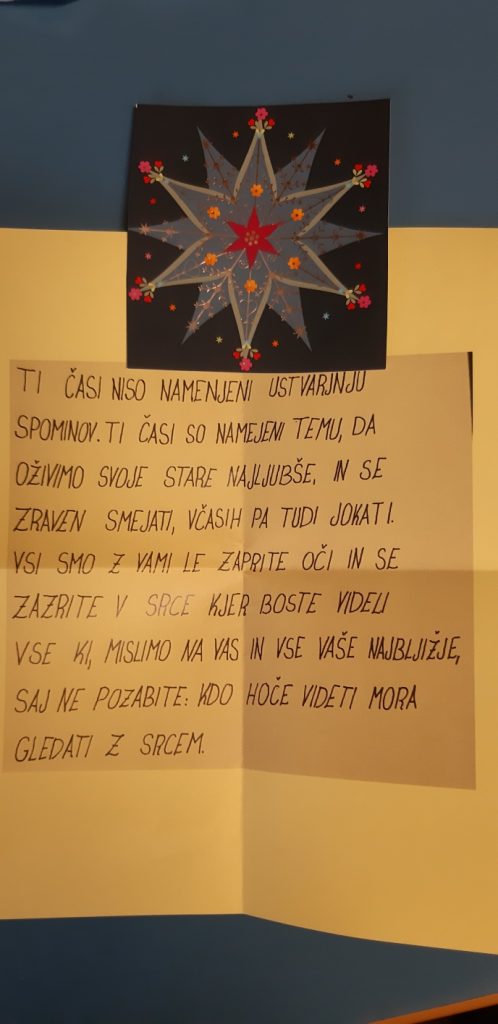 TI ČASI NISO NAMENJENI USTVARJNJU
SPOMINOV. TI ČASI SO NAMEJENI TEMU, DA
OŽIVIMO SVOJE STARE NAJLJUBŠE, IN SE
ZRAVEN SMEJATI, VČASIH PA TUDI JOKATI.
VSI SMO Z VAMI LE ZAPRITE OČI IN SE
ZAZRITE V SRCE KJER BOSTE VIDELI
VSE KI, MISLIMO NA VAS IN VSE VAŠE NAJBLJIŽJE,
SAJ NE POZABITE: KDO HOČE VIDETI MORA
GLEDATI Z SRCEM.